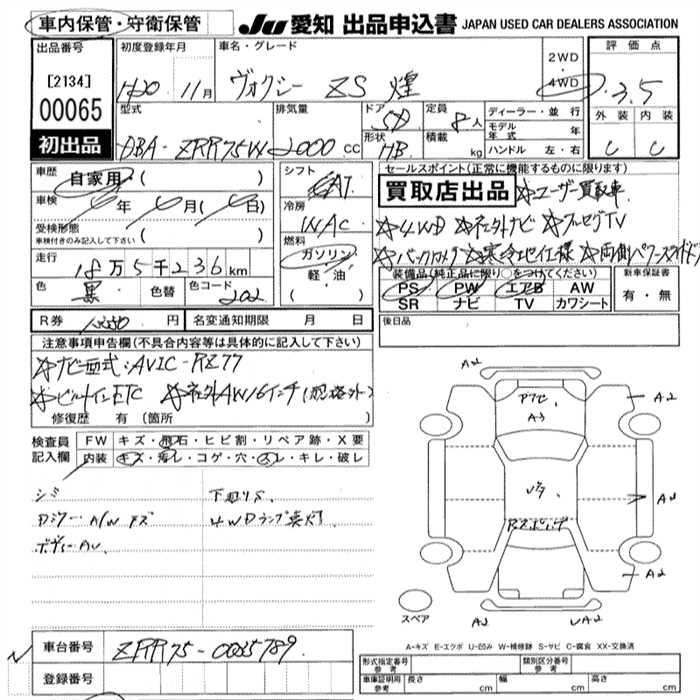 車内保管・守衛保管
JU 愛知 出品申込書 JAPAN USED CAR DEALERS ASSOCIATION
出品番号
[2134]
00065
初出品
初度登録年月
H20 11月
車名・グレード
ヴォクシー ZS 煌
2WD
・
4WD
評価点
3.5
外装 内装
C C
型式
DBA-ZRR75W
排気量
2000 cc
ドア
5D
形状
HB
定員
8人
積載
kg
ディーラー・並行
モデル年式 年
ハンドル 左・右
車歴
自家用 ( )
車検
年 月 ( 日)
受検形態
車検付きのみ記入して下さい ( )
走行
18万5千236km
色
黒
色替
色コード
202
シフト
AT
冷房
WAC
燃料
ガソリン
・
軽・油
( )
セールスポイント(正常に機能するものに限ります)
買取店出品 ☆ユーザー買取車
☆4WD ☆社外ナビ ☆フルセグTV
☆バックカメラ ☆寒冷地仕様 ☆両側パワースライドドア
装備品(純正品に限り○をつけてください)
PS PW エアB AW
SR ナビ TV カワシート
新車保証書
有・無
R券 円
名変通知期限 月 日
後日品
注意事項申告欄(不具合内容等は具体的に記入して下さい)
☆ナビ型式:AVIC-RZ77
☆ビルトインETC ☆社外AW16インチ(規格外)
修復歴 有(箇所 )
検査員
記入欄
FW キズ・飛石・ヒビ割・リペア跡・X要
内装 キズ・汚レ・コゲ・穴・スレ・キレ・破レ
シミ
下廻りS
4WDランプ点灯
ボディーAU
A2
A2
A3
A2
A2
A2
UA2
スペア
A-キズ E-エクボ U-凹み W-補修跡 S-サビ C-腐食 XX-交換済
車台番号
ZRR75-0035789
登録番号
形式指定番号
参考
類別区分番号
参考
車庫証明用
参考
長さ cm
幅 cm
高さ cm